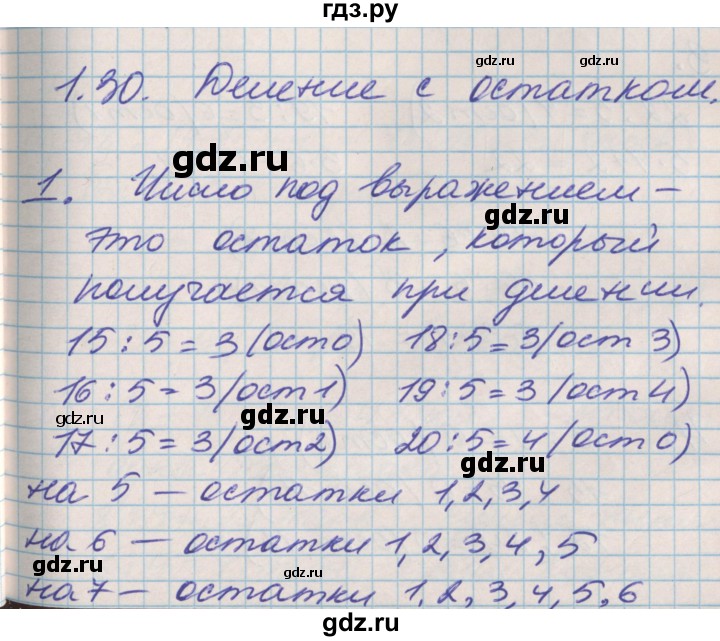 гдз.ру
gdz.ru
1.30. Деление с остатком.
gdz.ru
1. Число под выражением –
gdz.ru gdz.ru
это остаток, который
получается при делении.
gdz.ru gdz.ru
15 : 5 = 3 (ост 0) 18 : 5 = 3 (ост 3)
16 : 5 = 3 (ост 1) 19 : 5 = 3 (ост 4)
gdz.ru gdz.ru
17 : 5 = 3 (ост 2) 20 : 5 = 4 (ост 0)
gdz.ru
на 5 – остатки 1, 2, 3, 4
на 6 – остатки 1, 2, 3, 4, 5
gdz.ru gdz.ru
на 7 – остатки 1, 2, 3, 4, 5, 6
gdz.ru